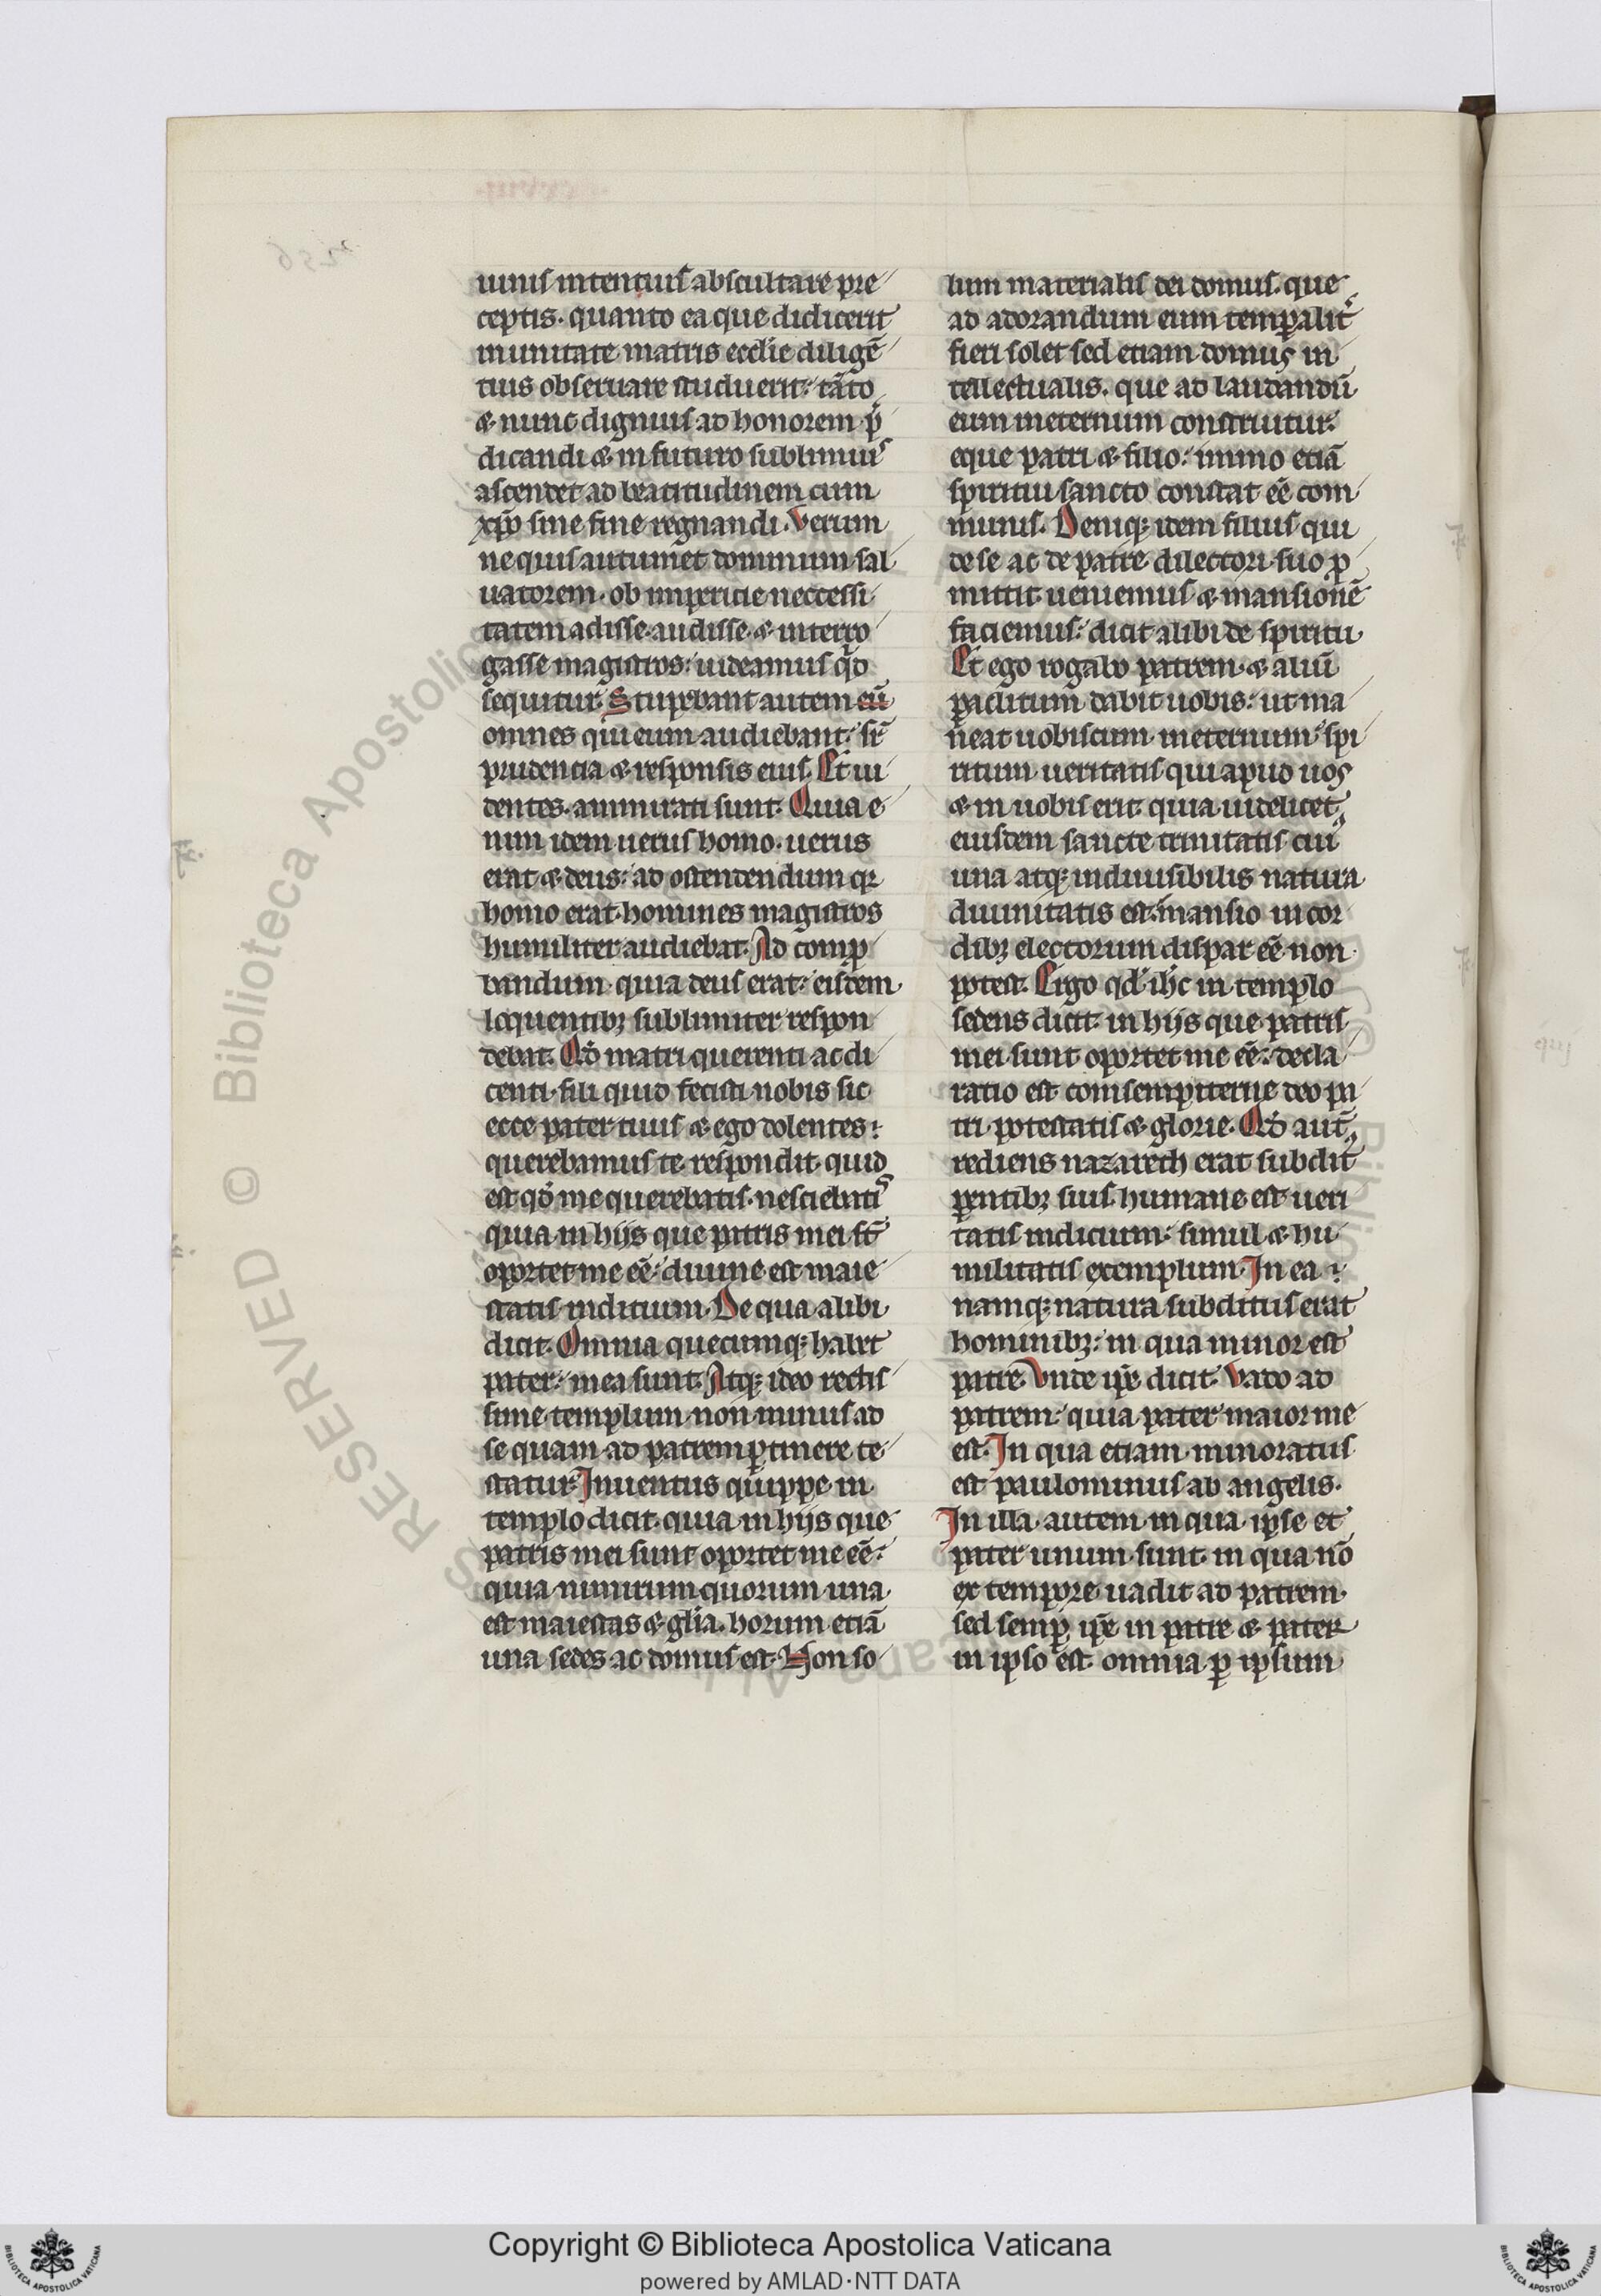 uinis intentius abscultare pre
ceptis. quanto ea que didicerit
in unitate matris ecclie diligē
tius obseruare studuerit: tāto
& nunc dignius ad honorem p̄
dicandi & in futuro sublimius
ascendet ad beatitudinem cum
xp̄o sine fine regnandi. Verum
ne quis autumet dominum sal
uatorem. ob imperitie neccessi
tatem adisse. audisse. & interro
gasse magistros: uideamus qd̄
sequitur. Stupebant autem eū
omnes qui eum audiebant: sr̄
prudencia & responsis eius. Et ui
dentes. ammirati sunt. Quia e
nim idem uerus homo. uerus
erat & deus: ad ostendendum qr
homo erat. homines magistros
humiliter audiebat. Ad comp̱
bandum quia deus erat: eisdem
loquentibꝫ sublimiter respon
debat. Qd̄ matri querenti ac di
centi. fili quid fecisti nobis sic
ecce pater tuus & ego dolentes:
querebamus te. respondit. quid
est qd̄ me querebatis. nesciebatis
quia in hijs que patris mei st̄
oportet me eē: diuine est maie
statis inditium. De qua alibi
dicit. Omnia quecumqꝫ habet
pater: mea sunt. Atqꝫ ideo rectis
sime templum non minus ad
se quam ad patrem ꝑtinere te
statur. Inuentus quippe in
templo dicit. quia in hijs que
patris mei sunt oportet me eē:
quia nimirum quorum una
est maiestas & glīa. horum etiā
una sedes ac domus est. Non so
lum materialis dei domus. que
ad adorandum eum temporalit̄
fieri solet sed etiam domus in
tellectualis. que ad laudandū
eum ineternum construitur:
eque patri & filio: immo etiā
spiritui sancto constat eē com
munis. Deniqꝫ idem filius qui
de se ac de patre dilectori suo ꝓ
mittit. ueniemus & mansionē
faciemus: dicit alibi de spiritu
Et ego rogabo patrem. & aliū
paclitum dabit uobis: ut ma
neat uobiscum ineternum spi
ritum ueritatis qui apud uos
& in uobis erit. quia uidelicet
eiusdem sancte trinitatis cui9
una atqꝫ indiuisibilis natura
diuinitatis est. mansio in cor
dibꝫ electorum dispar eē non
potest. Ergo qd̄ ihc̄ in templo
sedens dicit. in hijs que patris
mei sunt oportet me eē: decla
ratio est consempiterne deo pa
tri potestatis & glorie. Qd̄ aut̄
rediens nazareth erat subdit9
ꝑentibꝫ suis. humane est ueri
tatis indicium: simul & hu
militatis exemplum. In ea
namqꝫ natura subditus erat
hominibꝫ: in qua minor est
patre. Vnde ip̄e dicit. Vado ad
patrem: quia pater maior me
est. In qua etiam minoratus
est paulominus ab angelis.
In illa autem in qua ipse et
pater unum sunt. in qua nō
ex tempore uadit ad patrem.
sed semꝑ ip̄e in patre & pater
in ipso est. omnia ꝑ ipsum
Copyright © Biblioteca Apostolica Vaticana
powered by AMLAD·NTT DATA